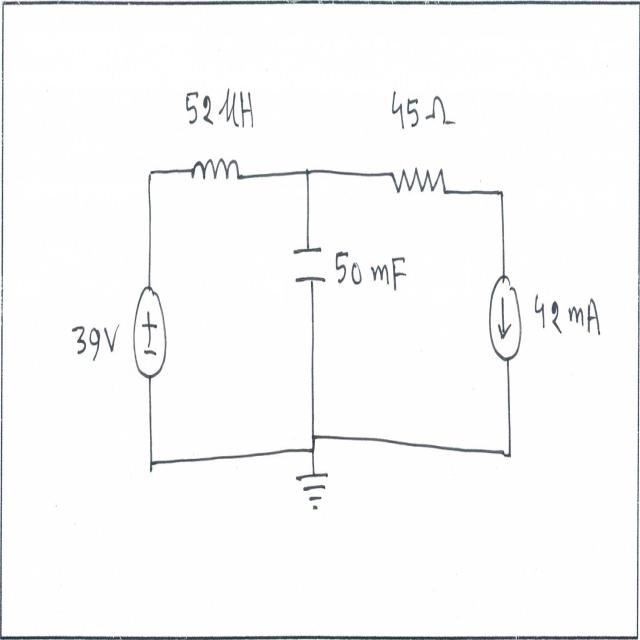 52 µH
45 Ω
50 mF
39V
42 mA